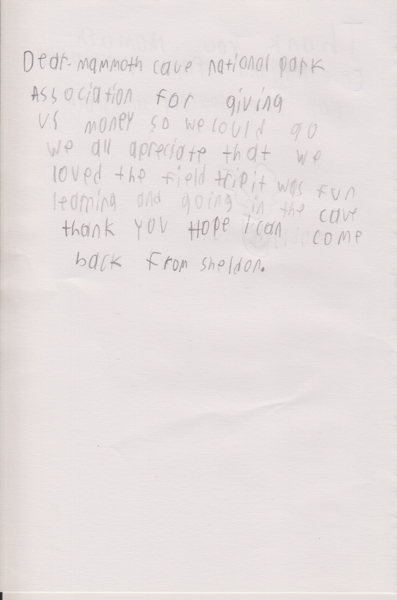 Dear mammoth cave national park
Association for giving
us money so we could go
we all apreciate that we
loved the field trip it was fun
learning and going in the cave
thank you Hope i can come
back From sheldon.